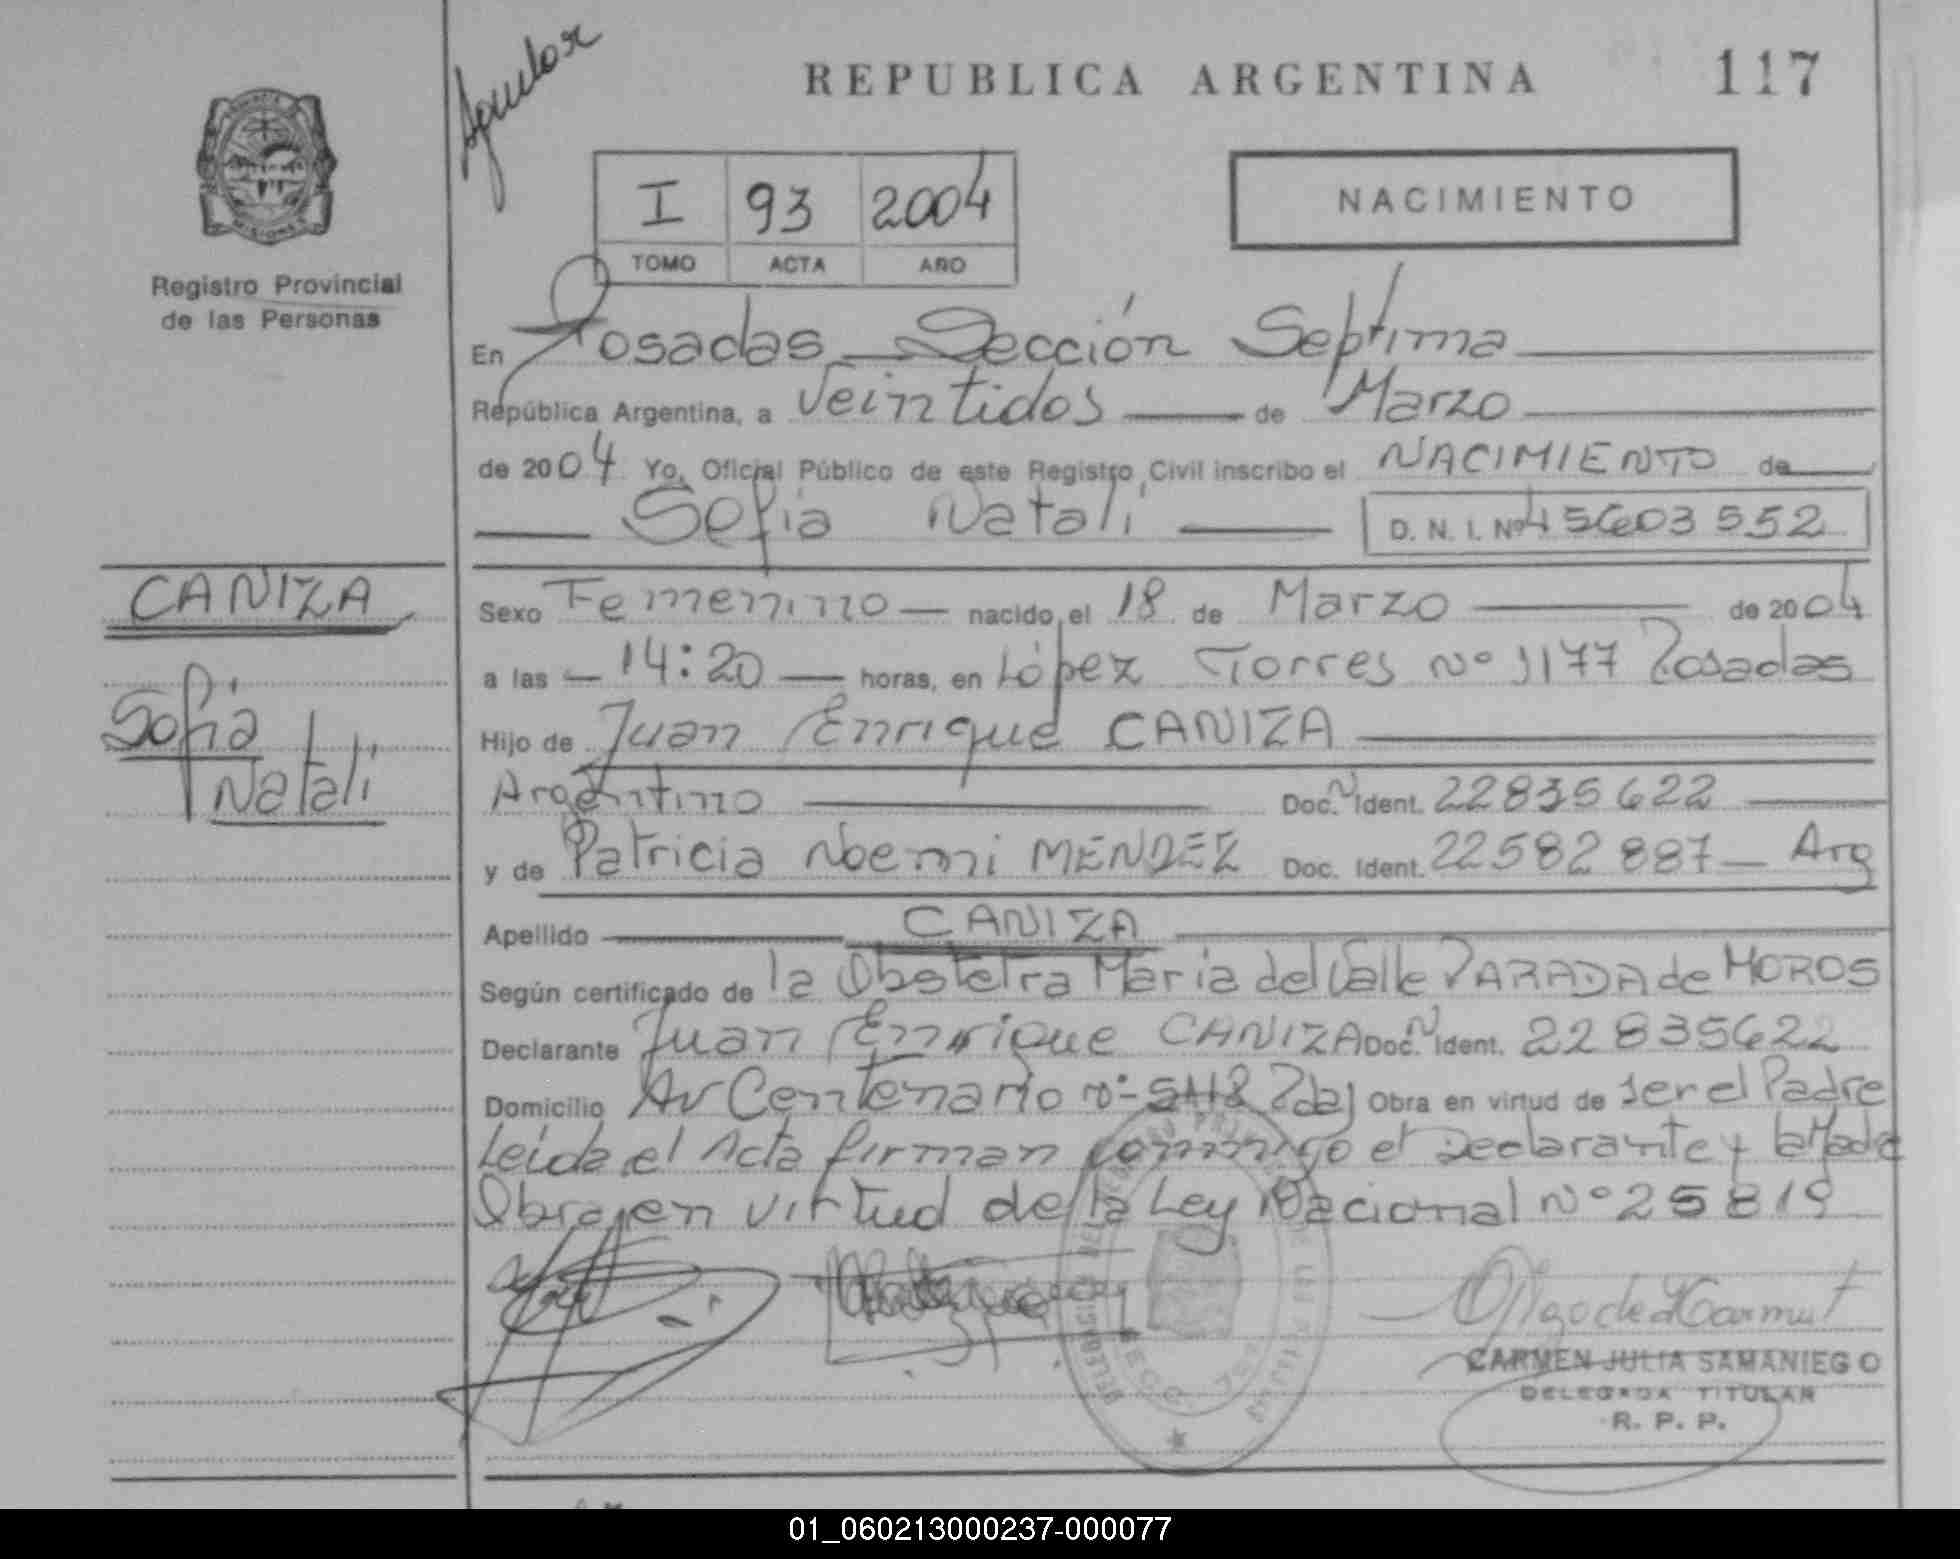 REPUBLICA ARGENTINA 117
I 93 2004
TOMO ACTA AÑO
NACIMIENTO
Registro Provincial
de las Personas
En Posadas Sección Septima
República Argentina, a Veintidos de Marzo
de 2004 Yo, Oficial Público de este Registro Civil inscribo el NACIMIENTO de
Sofia Natalí D. N. I. Nº 45603552
CANIZA
Sofia
Natalí
Sexo Femenino nacido el 18 de Marzo de 2004
a las 14:20 horas, en López Torres Nº 1177 Posadas
Hijo de Juan Enrique CANIZA
Argentino Doc. N Ident. 22835622
y de Patricia Noemi MENDEZ Doc. Ident. 22582887 Arg
Apellido CANIZA
Según certificado de la Obstetra Maria del Valle PARADA de MOROS
Declarante Juan Enrique CANIZA Doc. N Ident. 22835622
Domicilio Av Centenario Nº Pdas Obra en virtud de ser el Padre
Leida el Acta firman conmigo el Declarante y la Madre
Obra en virtud de la Ley Nacional Nº 25819
CARMEN JULIA SAMANIEGO
DELEGADA TITULAR
R. P. P.
01_060213000237-000077